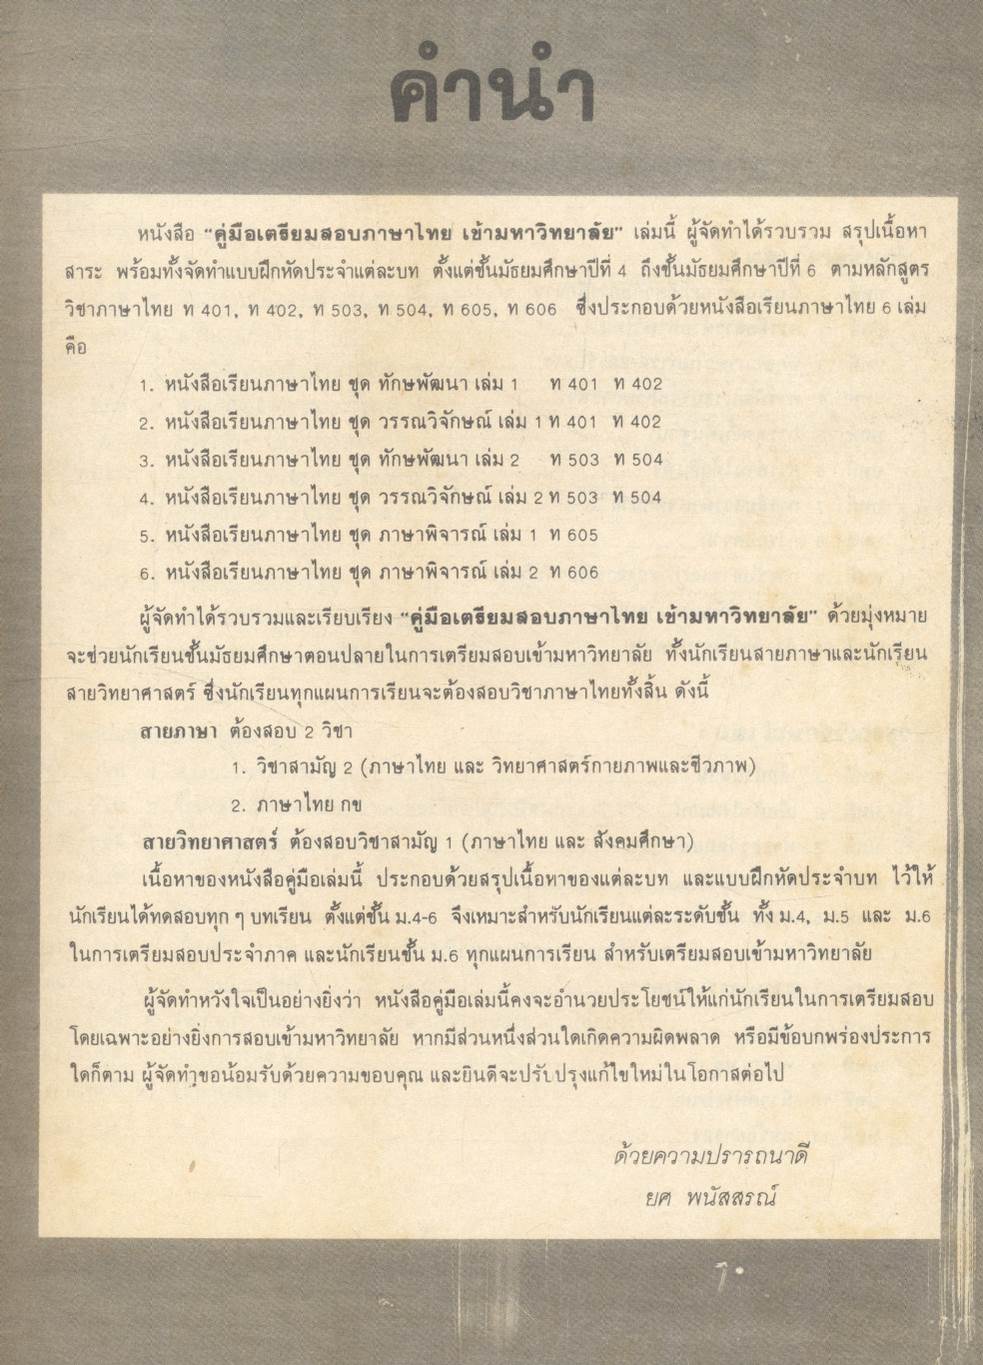 คำนำ
หนังสือ "คู่มือเตรียมสอบภาษาไทย เข้ามหาวิทยาลัย" เล่มนี้ ผู้จัดทำได้รวบรวม สรุปเนื้อหา
สาระ พร้อมทั้งจัดทำแบบฝึกหัดประจำแต่ละบท ตั้งแต่ชั้นมัธยมศึกษาปีที่ 4 ถึงชั้นมัธยมศึกษาปีที่ 6 ตามหลักสูตร
วิชาภาษาไทย ท 401, ท 402, ท 503, ท 504, ท 605, ท 606 ซึ่งประกอบด้วยหนังสือเรียนภาษาไทย 6 เล่ม
คือ
1. หนังสือเรียนภาษาไทย ชุด ทักษพัฒนา เล่ม 1 ท 401 ท 402
2. หนังสือเรียนภาษาไทย ชุด วรรณวิจักษณ์ เล่ม 1 ท 401 ท 402
3. หนังสือเรียนภาษาไทย ชุด ทักษพัฒนา เล่ม 2 ท 503 ท 504
4. หนังสือเรียนภาษาไทย ชุด วรรณวิจักษณ์ เล่ม 2 ท 503 ท 504
5. หนังสือเรียนภาษาไทย ชุด ภาษาพิจารณ์ เล่ม 1 ท 605
6. หนังสือเรียนภาษาไทย ชุด ภาษาพิจารณ์ เล่ม 2 ท 606
ผู้จัดทำได้รวบรวมและเรียบเรียง "คู่มือเตรียมสอบภาษาไทย เข้ามหาวิทยาลัย" ด้วยมุ่งหมาย
จะช่วยนักเรียนชั้นมัธยมศึกษาตอนปลายในการเตรียมสอบเข้ามหาวิทยาลัย ทั้งนักเรียนสายภาษาและนักเรียน
สายวิทยาศาสตร์ ซึ่งนักเรียนทุกแผนการเรียนจะต้องสอบวิชาภาษาไทยทั้งสิ้น ดังนี้
สายภาษา ต้องสอบ 2 วิชา
1. วิชาสามัญ 2 (ภาษาไทย และ วิทยาศาสตร์กายภาพและชีวภาพ)
2. ภาษาไทย กข
สายวิทยาศาสตร์ ต้องสอบวิชาสามัญ 1 (ภาษาไทย และ สังคมศึกษา)
เนื้อหาของหนังสือคู่มือเล่มนี้ ประกอบด้วยสรุปเนื้อหาของแต่ละบท และแบบฝึกหัดประจำบท ไว้ให้
นักเรียนได้ทดสอบทุก ๆ บทเรียน ตั้งแต่ชั้น ม.4-6 จึงเหมาะสำหรับนักเรียนแต่ละระดับชั้น ทั้ง ม.4, ม.5 และ ม.6
ในการเตรียมสอบประจำภาค และนักเรียนชั้น ม.6 ทุกแผนการเรียน สำหรับเตรียมสอบเข้ามหาวิทยาลัย
ผู้จัดทำหวังใจเป็นอย่างยิ่งว่า หนังสือคู่มือเล่มนี้คงจะอำนวยประโยชน์ให้แก่นักเรียนในการเตรียมสอบ
โดยเฉพาะอย่างยิ่งการสอบเข้ามหาวิทยาลัย หากมีส่วนหนึ่งส่วนใดเกิดความผิดพลาด หรือมีข้อบกพร่องประการ
ใดก็ตาม ผู้จัดทำขอน้อมรับด้วยความขอบคุณ และยินดีจะปรับปรุงแก้ไขใหม่ในโอกาสต่อไป
ด้วยความปรารถนาดี
ยศ พนัสสรณ์